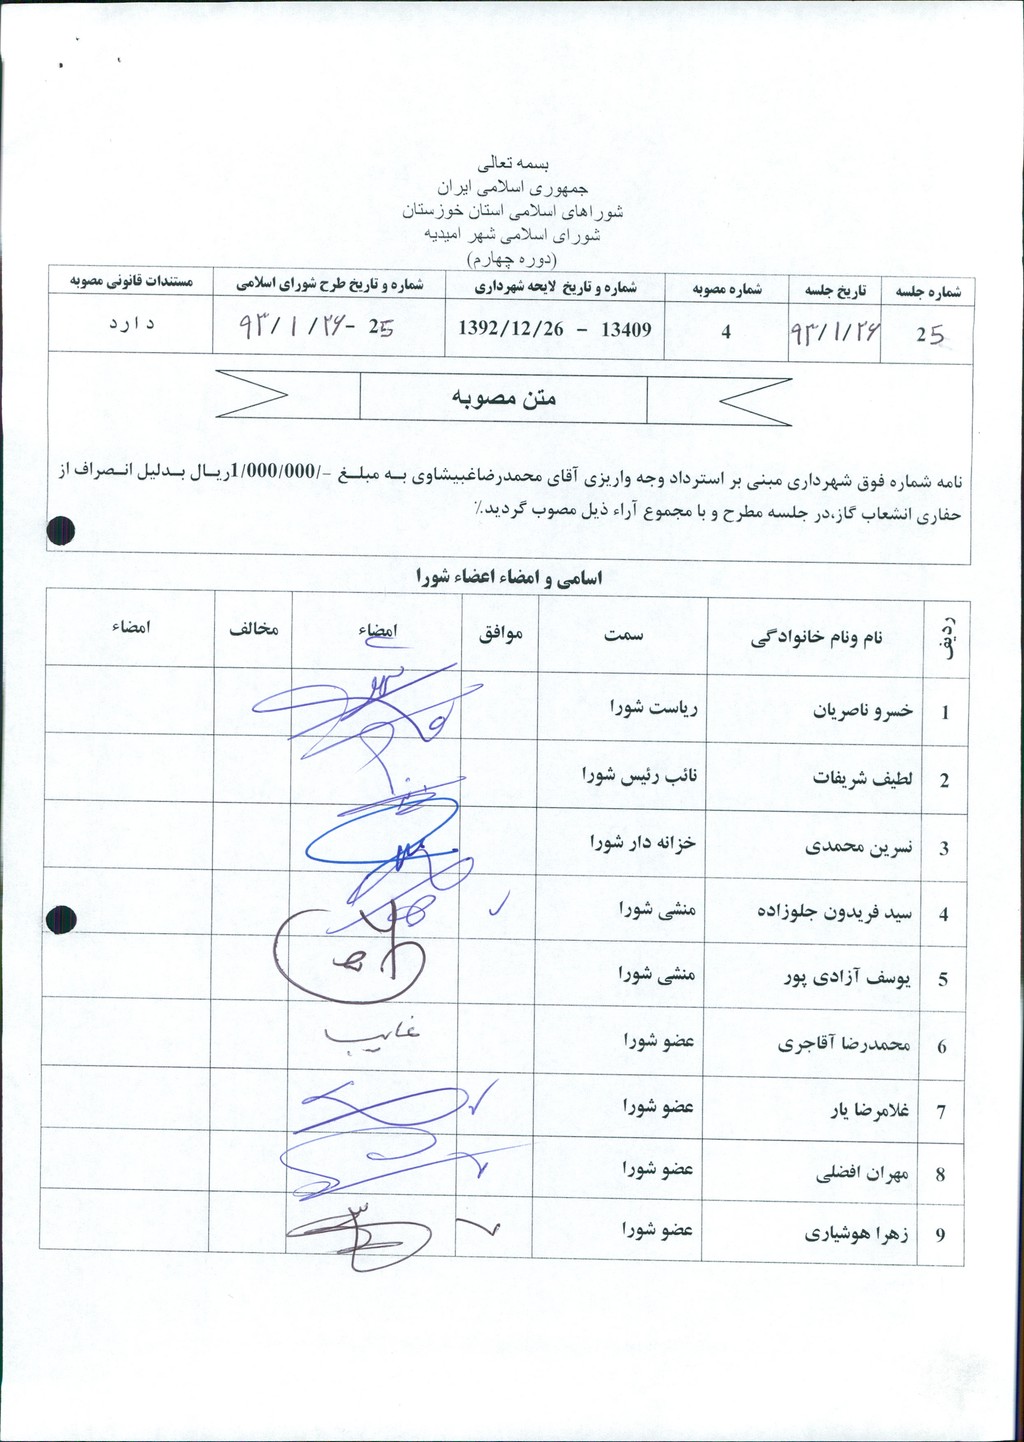 بسمه تعالی
جمهوری اسلامی ایران
شوراهای اسلامی استان خوزستان
شورای اسلامی شهر امیدیه
(دوره چهارم)
شماره جلسه تاریخ جلسه شماره مصوبه شماره و تاریخ لایحه شهرداری شماره و تاریخ طرح شورای اسلامی مستندات قانونی مصوبه
25 ۹۳/۱/۲۶ 4 13409 - 1392/12/26 25 - ۹۳/۱/۲۶ دارد
متن مصوبه
نامه شماره فوق شهرداری مبنی بر استرداد وجه واریزی آقای محمدرضاغبیشاوی به مبلغ -/1/000/000ریال بدلیل انصراف از
حفاری انشعاب گاز،در جلسه مطرح و با مجموع آراء ذیل مصوب گردید.٪
اسامی و امضاء اعضاء شورا
ردیف نام ونام خانوادگی سمت موافق امضاء مخالف امضاء
1 خسرو ناصریان ریاست شورا
2 لطیف شریفات نائب رئیس شورا
3 نسرین محمدی خزانه دار شورا
4 سید فریدون جلوزاده منشی شورا
5 یوسف آزادی پور منشی شورا
6 محمدرضا آقاجری عضو شورا غایب
7 غلامرضا یار عضو شورا
8 مهران افضلی عضو شورا
9 زهرا هوشیاری عضو شورا